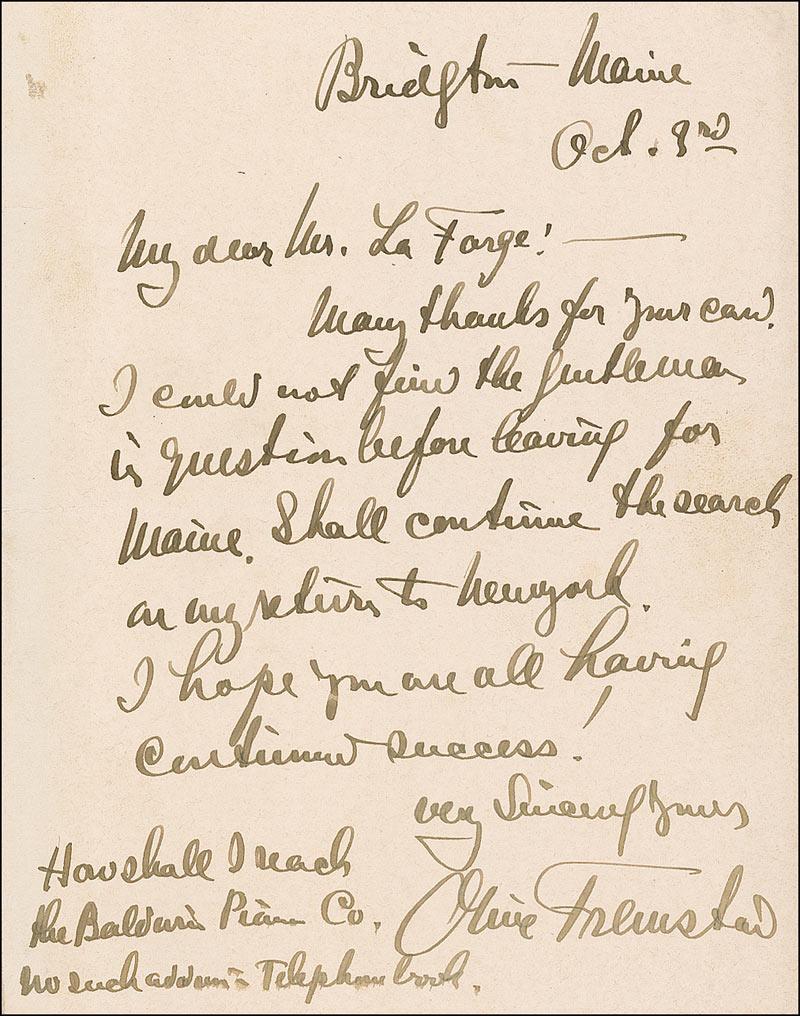 Bridgton — Maine
Oct. 3rd
My dear Mr. La Forge! —
Many thanks for your card.
I could not find the gentleman
in question before leaving for
Maine. Shall continue the search
on my return to Newyork.
I hope you are all having
continued success!
very Sincerely Yours
Olive Fremstad
How shall I reach
the Baldwin Piano Co.
no such address in Telephone book.